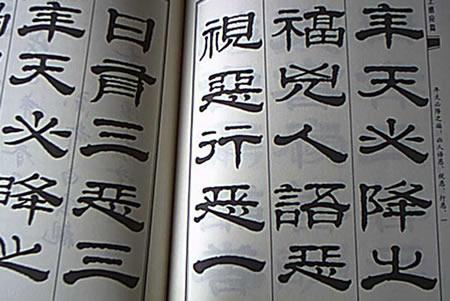 年天必降之
福兇人語惡
視惡行惡一
日有三惡三
年天必降之